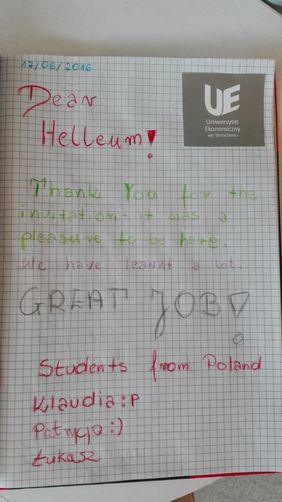 17/06/2016
UE
Uniwersytet
Ekonomiczny
we Wrocławiu
Dear
Helleum!
Thank You for the
invitation - it was a
pleasure to be here.
We have learnt a lot.
GREAT JOB!
Students from Poland
Klaudia :P
Patrycja :)
Łukasz